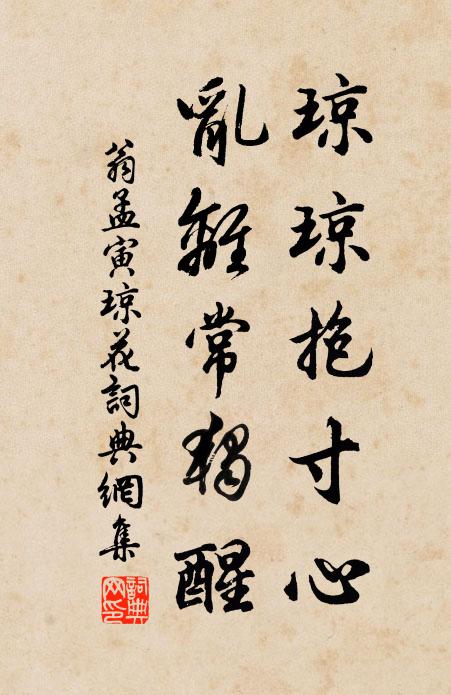 琼琼抱寸心
亂離常獨醒
翁孟寅琼花詞典網集
詞典网印